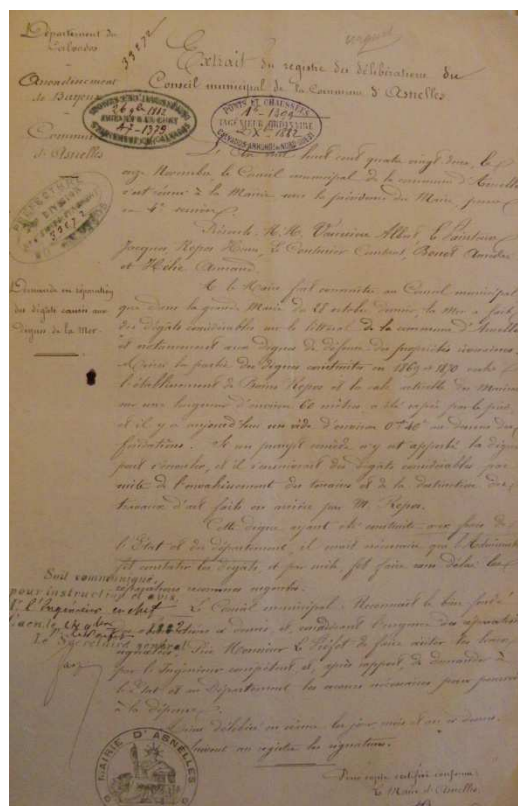 urgent
Département du
Calvados
39272
Extrait du registre des délibérations du
Conseil municipal de la Commune d'Asnelles
Arrondissement
de Bayeux
Commune
d'Asnelles
PONTS ET CHAUSSÉES
INGÉNIEUR ORDINAIRE
1882
L'An mil huit cent quatre vingt deux, le
onze Novembre le Conseil municipal de la commune d'Asnelles
s'est réuni à la Mairie sous la présidence du Maire, pour
sa 4e session.
Présents M.M.
Jacques, Repos Henri, Le Couturier
et Hélie Armand.
Demande en réparation
des dégâts causés aux
digues de la Mer.
M. le Maire fait connaître au Conseil municipal
que dans la grande Marée du 28 octobre dernier, la Mer a fait
des dégâts considérables sur le littoral de la commune d'Asnelles
et notamment aux digues de défense des propriétés riveraines.
la partie des digues construites en 1869 et 1870 entre
l'établissement de Bains Repos et la cale actuelle du
sur une longueur d'environ 60 mètres a été par le pied,
et il y a aujourd'hui un vide d'environ 0m40 au dessous des
fondations. Si un prompt remède n'y est apporté la digue
peut s'écrouler, et il s'ensuivrait des dégâts considérables par
suite de l'envahissement des terrains et de la destruction des
travaux d'art faits en arrière par M. Repos.
Cette digue, ayant été construite aux frais de
l'État et du département, il serait nécessaire que l'Administration
fît constater les dégâts, et par suite, fît faire sans délai les
réparations reconnues urgentes.
Soit communiqué
pour instruction et avis
à l'Ingénieur en chef
Caen, le
Le Secrétaire général
Le Conseil municipal. Reconnaît le bien fondé
à donner, et, considérant l'urgence des réparations
Prie Monsieur le Préfet de faire visiter les lieux
par l'Ingénieur compétent et, après rapport de demander à
l'État et au Département les secours nécessaires pour pourvoir
à la dépense.
délibéré en séance les jour, mois et an ci dessus.
suivent au registre les signatures.
MAIRIE D'ASNELLES
Pour copie certifiée conforme
Le Maire d'Asnelles